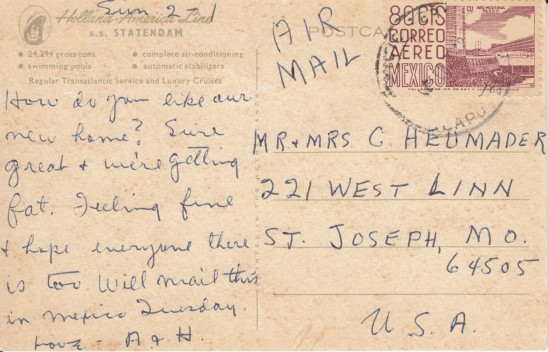 Sun 2-1
Holland-America Line
s.s. STATENDAM
• 24,294 gross tons • complete air-conditioning
• swimming pools • automatic stabilizers
Regular Transatlantic Service and Luxury Cruises
POSTCARD
AIR
MAIL
80 CTS
CORREO
AEREO
MEXICO
How do you like our
new home? Sure
great + we're getting
fat. Feeling fine
+ hope everyone there
is too. Will mail this
in Mexico Tuesday.
Love - A & H.
MR & MRS C. HEUMADER
221 WEST LINN
ST. JOSEPH, MO.
64505
U.S.A.